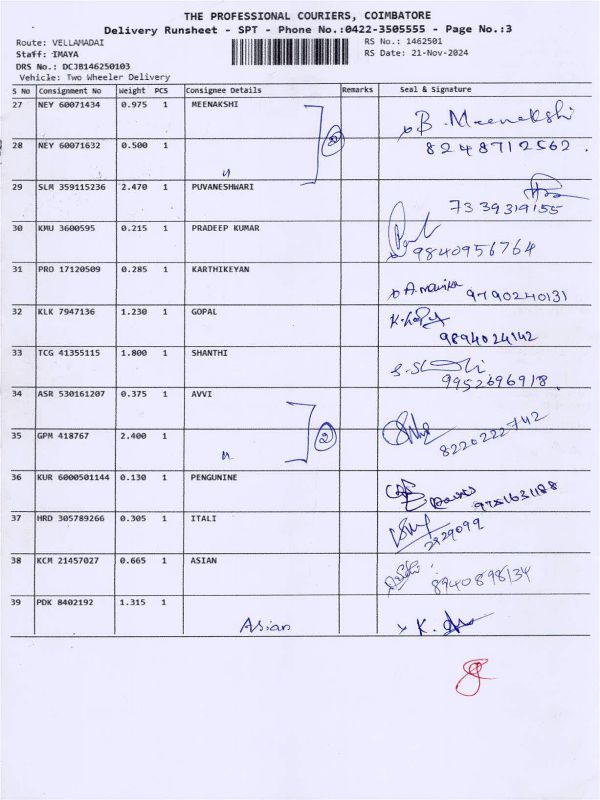 THE PROFESSIONAL COURIERS, COIMBATORE
Delivery Runsheet - SPT - Phone No.:0422-3505555 - Page No.:3
Route: VELLAMADAI RS No.: 1462501
Staff: IMAYA RS Date: 21-Nov-2024
DRS No.: DCJB146250103
Vehicle: Two Wheeler Delivery
S No Consignment No Weight PCS Consignee Details Remarks Seal & Signature
27 NEY 60071434 0.975 1 MEENAKSHI B. Meenakshi
28 NEY 60071632 0.500 1 8248712562.
29 SLM 359115236 2.470 1 PUVANESHWARI 7339319155
30 KMU 3600595 0.215 1 PRADEEP KUMAR 9840956764
31 PRO 17120509 0.285 1 KARTHIKEYAN 9790240131
32 KLK 7947136 1.230 1 GOPAL 9894024142
33 TCG 41355115 1.800 1 SHANTHI 9952696918.
34 ASR 530161207 0.375 1 AVVI
35 GPM 418767 2.400 1 2 8220222742
36 KUR 6000501144 0.130 1 PENGUNINE
37 HRD 305789266 0.305 1 ITALI 2929099
38 KCM 21457027 0.665 1 ASIAN 8940898134
39 PDK 8402192 1.315 1 Asian K.